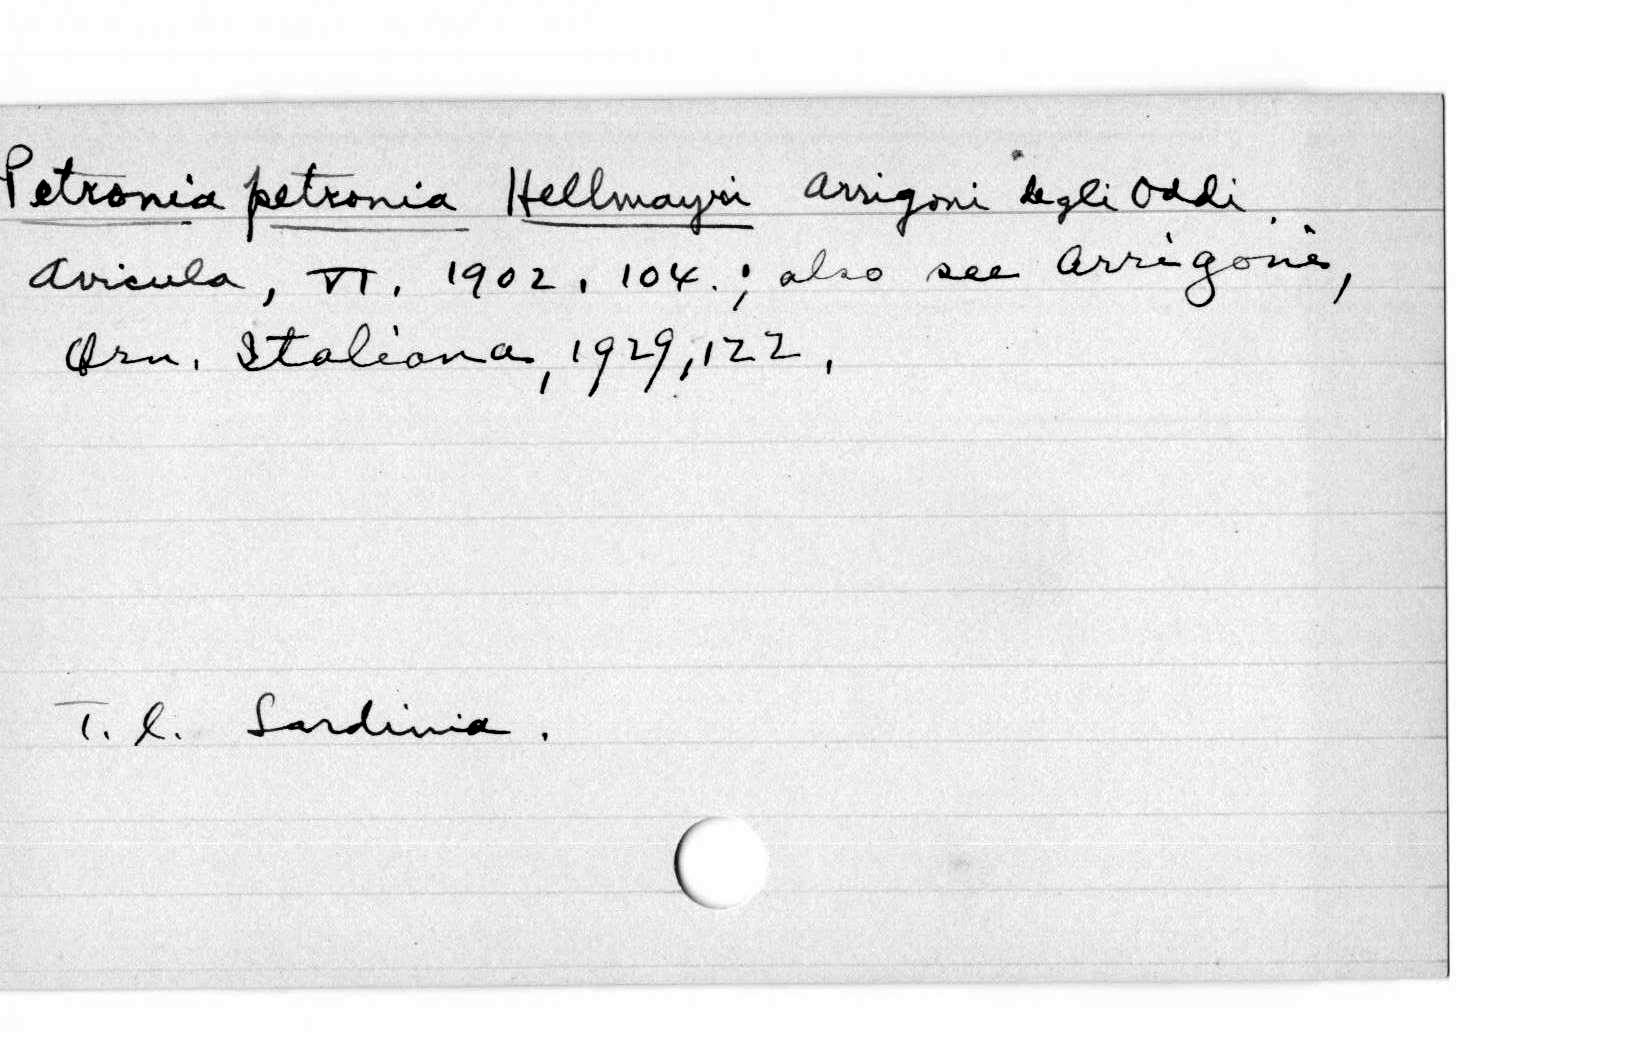 Petronia petronia Hellmayri Arrigoni degli Oddi.
Avicula, VI. 1902, 104.; also see Arrigoni,
Orn. Italiana, 1929, 122.
T. l. Sardinia.